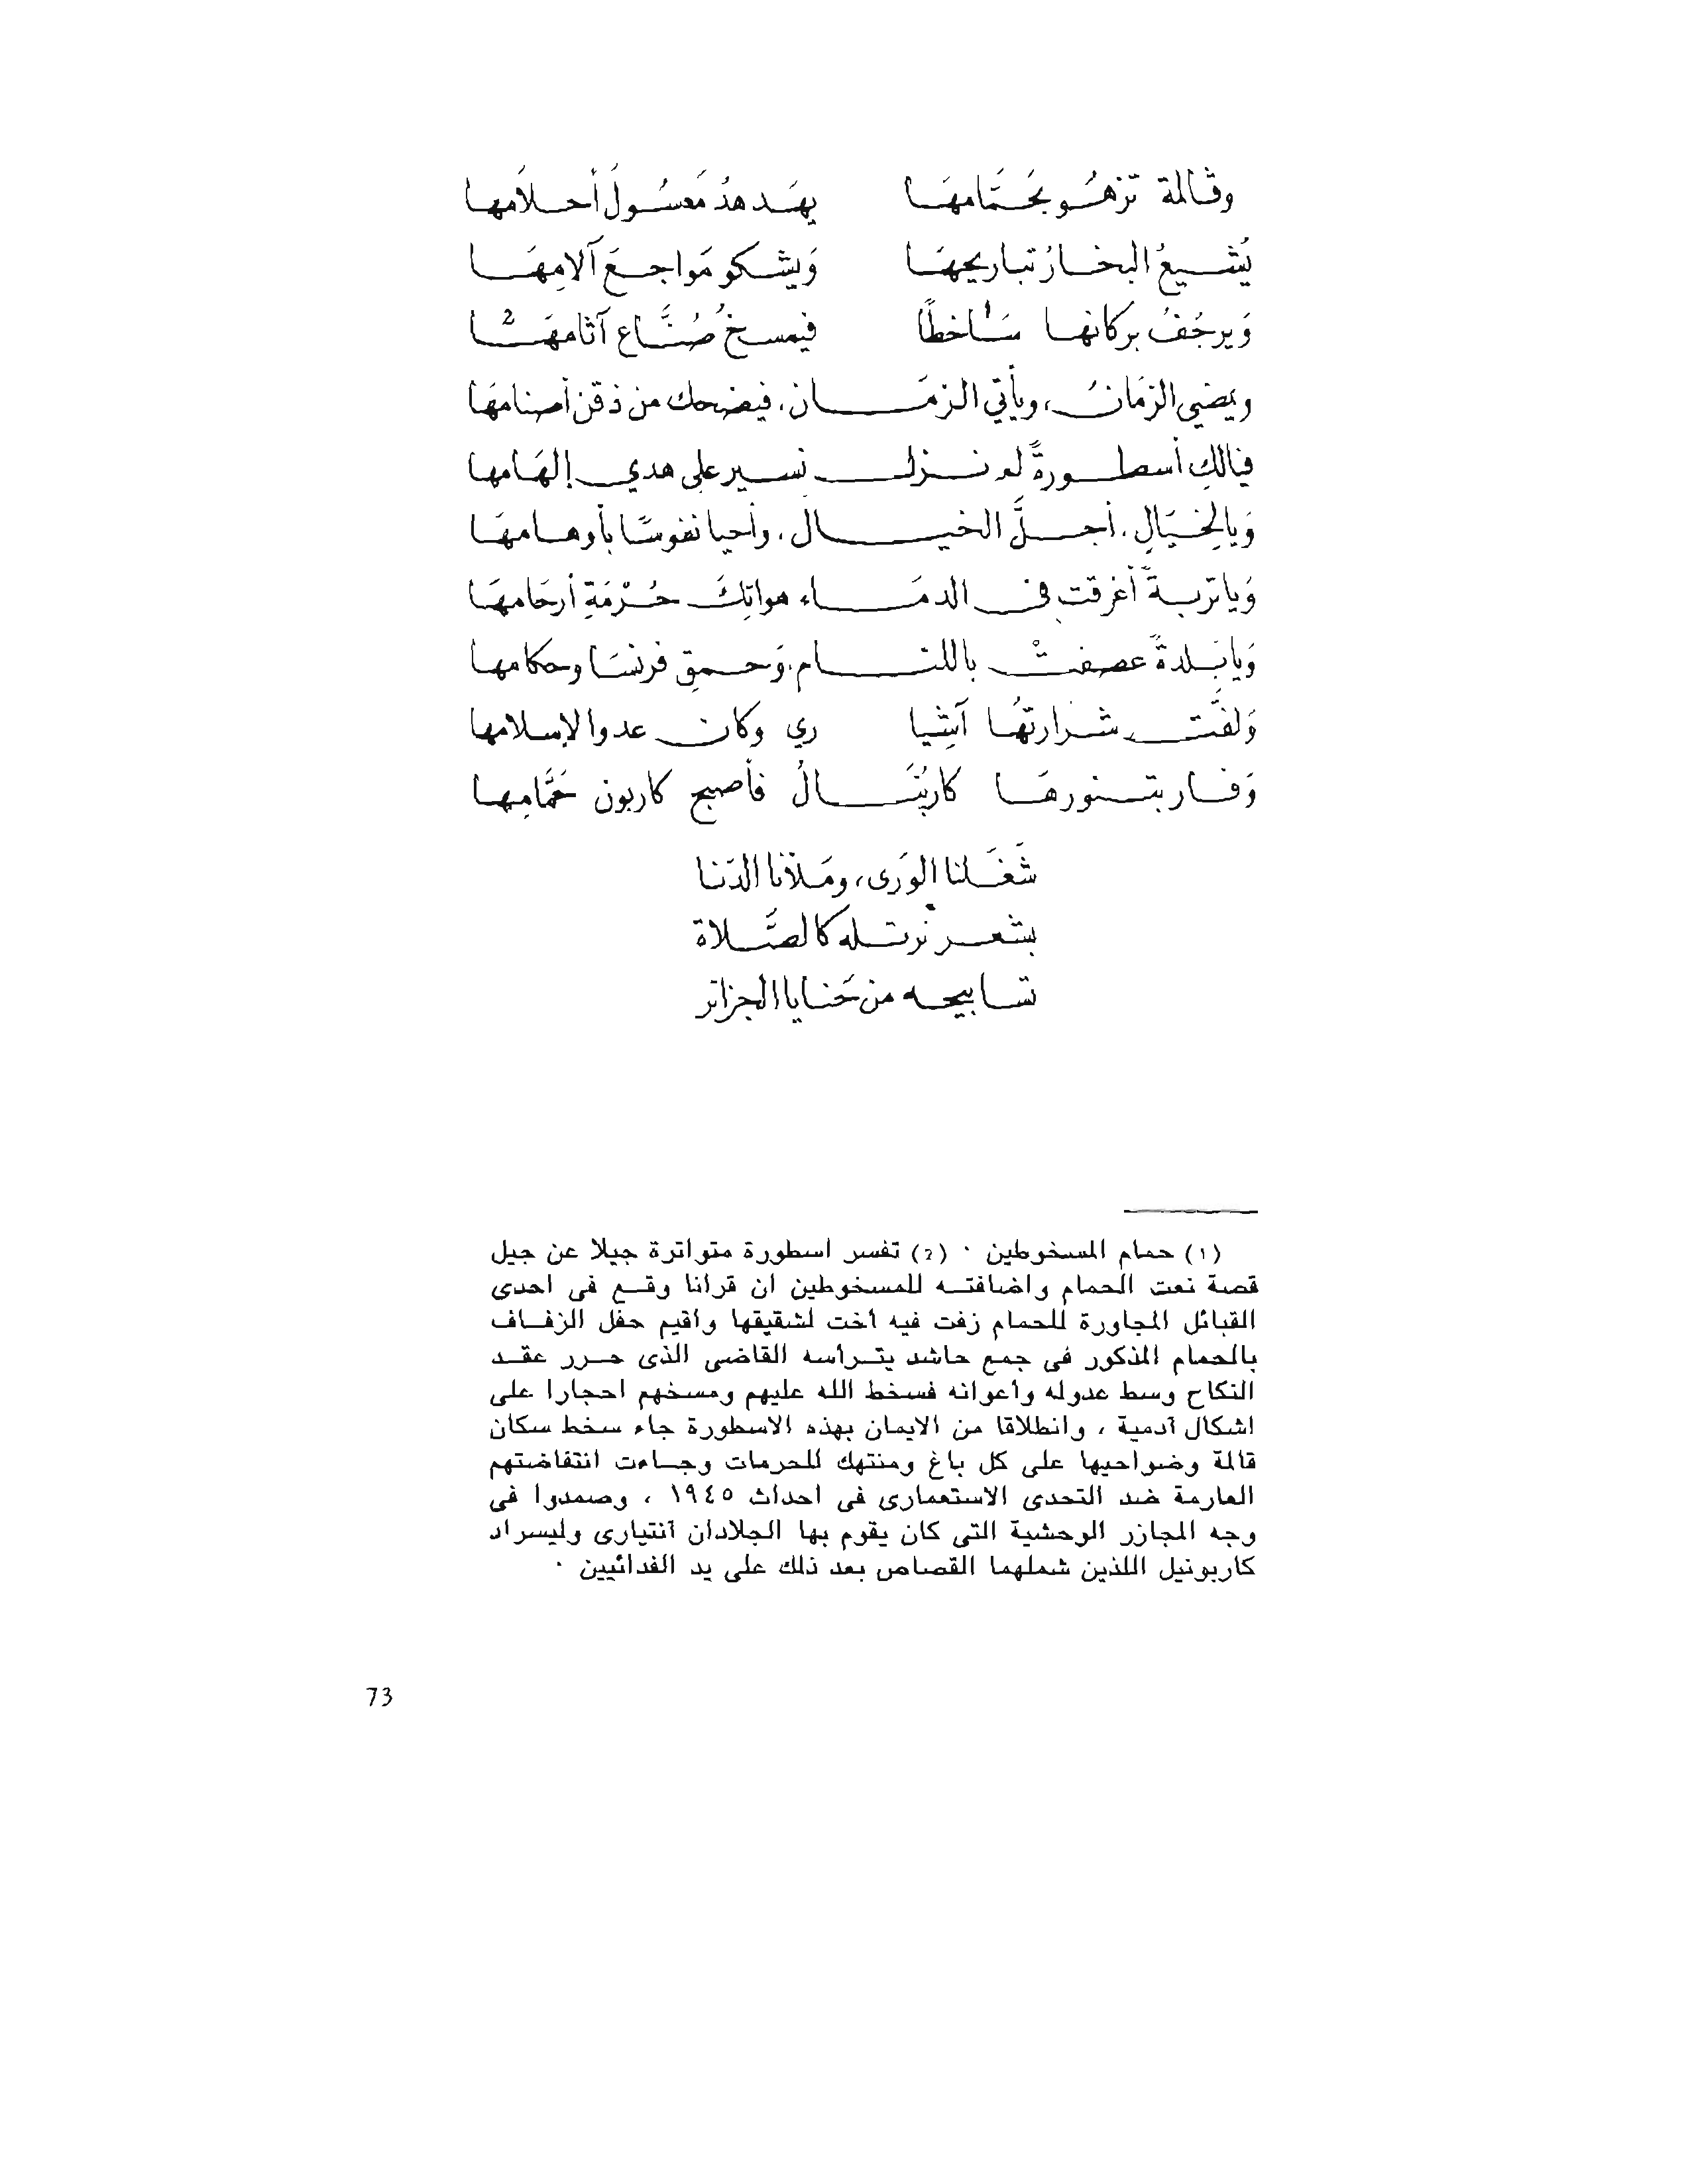 وڤالمة تزهُو بحَمَّامهَا يهَدهدُ مَعسُولَ أحلاَمها
يُشيعُ البخارُ تباريحهَا وَيشكو مَواجعَ آلامِهَا
وَيرجُفُ بركانها سَاخطًا فيمسخُ صُنَّاع آثامهَا 2
ويمضي الزمَانُ، ويأتي الزمَان، فيضحك من ذقن أصنامهَا
فيالكِ أسطورةً لم نزل نسير على هدي إلهَامها
وَيالخيَالٍ. أجلَّ الخيال، وأحيا نفوسًا بأوهامهَا
وَيا تربةً أغرقت في الدمَاء هواتِكَ حُرْمَةِ أرحَامهَا
وَيا بَلدةً عصفتْ باللئام، وَحمقِ فرنسَا وحكامها
وَلفَّت شرارتهَا آشِيا ري وكان عدوا لإسلامها
وَفار بتنورهَا كاربُنَال فأصبح كاربون حَمَّامِها
شَغَلنا الوَرى، ومَلأنا الدّنا
بشعر نُرتله كالصَّلاة
تسابيحه من حَنايا الجزائر
(١) حمام المسخوطين ٠ (2) تفسر اسطورة متواترة جيلا عن جيل
قصة نعت الحمام واضافته للمسخوطين ان قرانا وقع فى احدى
القبائل المجاورة للحمام زفت فيه أخت لشقيقها وأقيم حفل الزفاف
بالحمام المذكور فى جمع حاشد يترأسه القاضى الذى حرر عقد
النكاح وسط عدوله وأعوانه فسخط الله عليهم ومسخهم احجارا على
اشكال آدمية ، وانطلاقا من الايمان بهذه الاسطورة جاء سخط سكان
قالمة وضواحيها على كل باغ ومنتهك للحرمات وجاءت انتفاضتهم
العارمة ضد التحدى الاستعمارى فى احداث ١٩٤٥ ، وصمدوا فى
وجه المجازر الوحشية التى كان يقوم بها الجلادان آنتيارى وليسراد
كاربونيل اللذين شملهما القصاص بعد ذلك على يد الفدائيين ٠
73